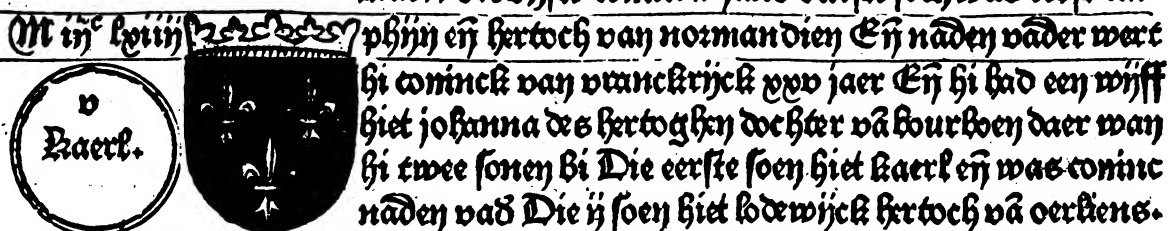 M iijᶜ lxiiij
v
Kaerl.
phijn eñ hertoch van normandien Eñ nāden vāder wert
hi coninck van vranckrijck xxv jaer Eñ hi had een wijff
hiet johanna des hertoghen dochter vā bourboen daer wan
hi twee sonen bi Die eerste soen hiet kaerl eñ was coninc
nāden vað Die ij soen hiet lodewijck hertoch vā oerliens.